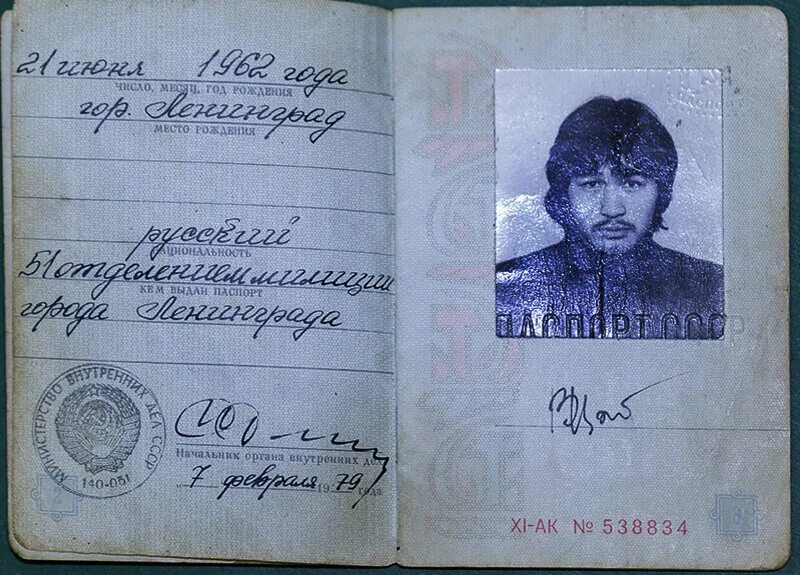 21 июня 1962 года
ЧИСЛО, МЕСЯЦ, ГОД РОЖДЕНИЯ
гор. Ленинград
МЕСТО РОЖДЕНИЯ
русский
НАЦИОНАЛЬНОСТЬ
51 отделением милиции
КЕМ ВЫДАН ПАСПОРТ
города Ленинграда
МИНИСТЕРСТВО ВНУТРЕННИХ ДЕЛ СССР
140-051
Начальник органа внутренних дел
7 февраля 1979 года
2
ПАСПОРТ СССР
ВЦой
XI-АК № 538834
3